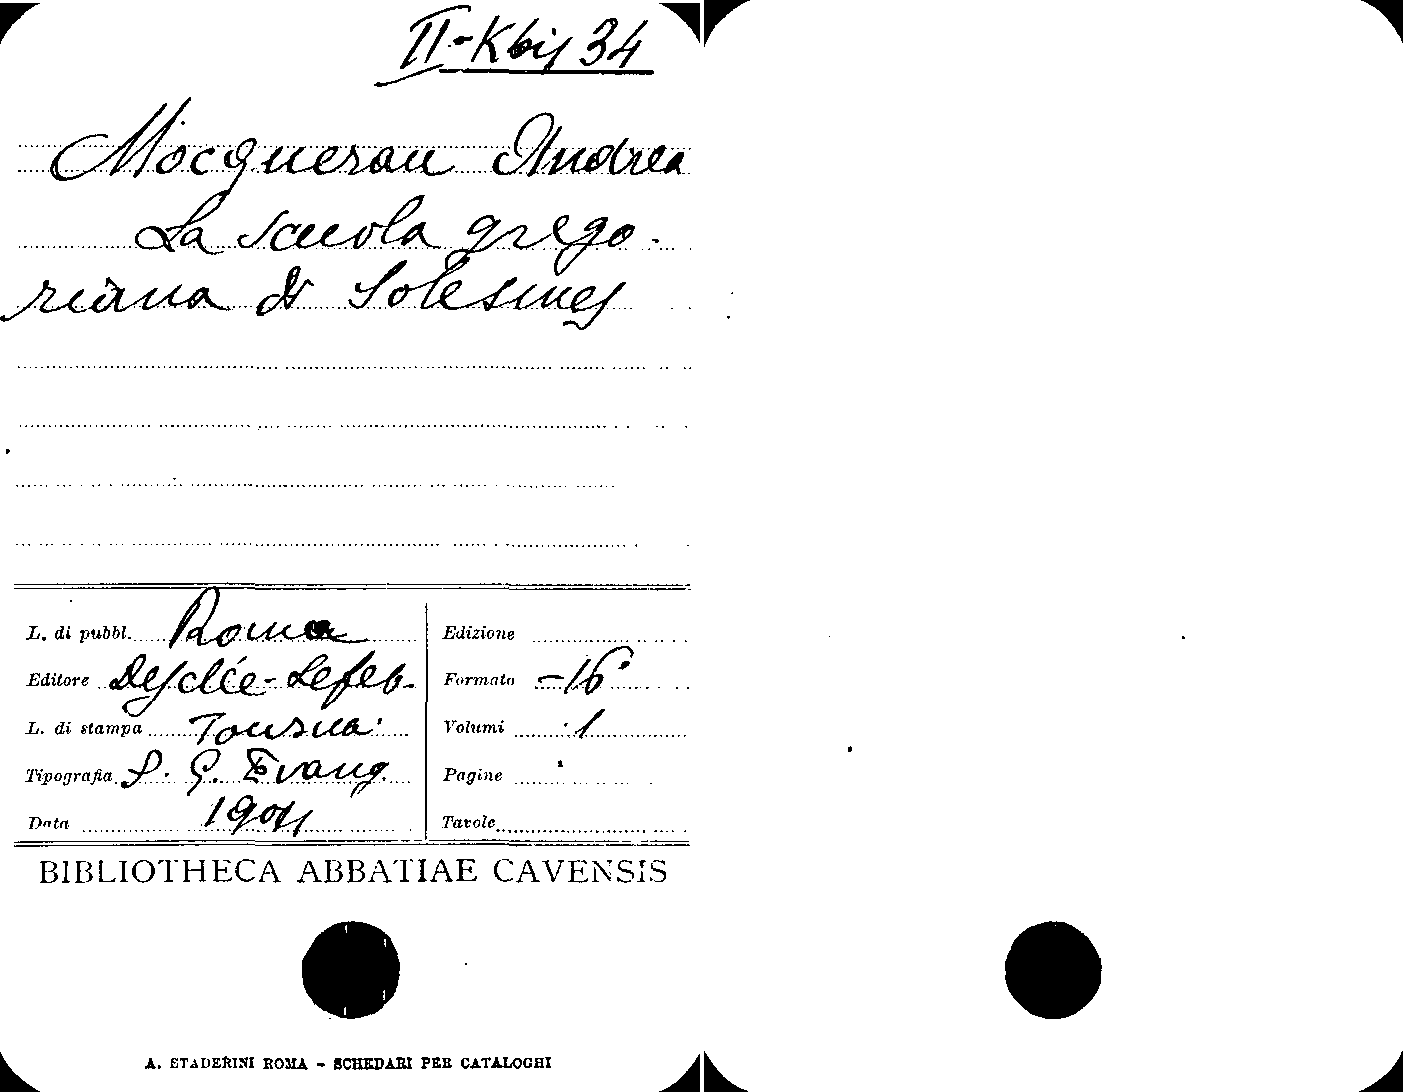 II-Kbis 34
Mocquerau Andrea
La scuola grego-
riana di Solesmes
L. di pubbl. Roma
Editore Desclée-Lefeb.
L. di stampa Tournai
Tipografia S. G. Evang.
Data 1904
Edizione
Formato -16°
Volumi 1
Pagine
Tavole
BIBLIOTHECA ABBATIAE CAVENSIS
A. STADERINI ROMA - SCHEDARI PER CATALOGHI